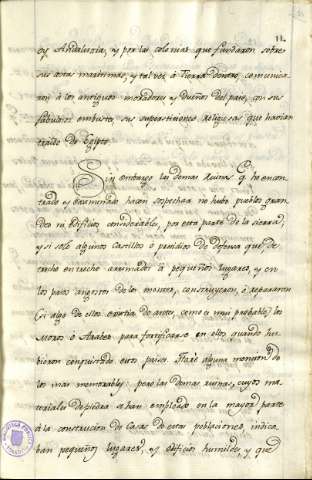 11.
oy Andalucia, y por las colonias que fundaron sobre
sus costas maritimas, y tal vez á Tierra dentro, comunica-
ron á los antiguos moradores, y dueños del pais, con sus
fabulosos embustes, sus supersticiones religiosas que havian
traido de Egipto.
Sin embargo las demas Ruinas q. he encon-
trado y examinado hacen sospechar no hubo pueblos gran-
des ni Edificios considerables, por esta parte de la sierra,
y si solo algunos Castillos ó presidios de defensa que de
trecho en trecho arrimados á pequeños lugares, y en
los pasos angostos de los montes, construyeron, ó repararon
(si algo de ellos existia de antes, como es muy probable) los
Moros ó Arabes para fortificarse en ellos quando hu-
bieron conquistado estos paises. Haré alguna mencion de
los mas memorables; pero las demas ruinas, cuyos ma-
teriales de piedra se han empleado en la mayor parte
á la construcion de Casas de estas poblaciones, indica-
ban pequeños lugares, y edificios humildes, y que